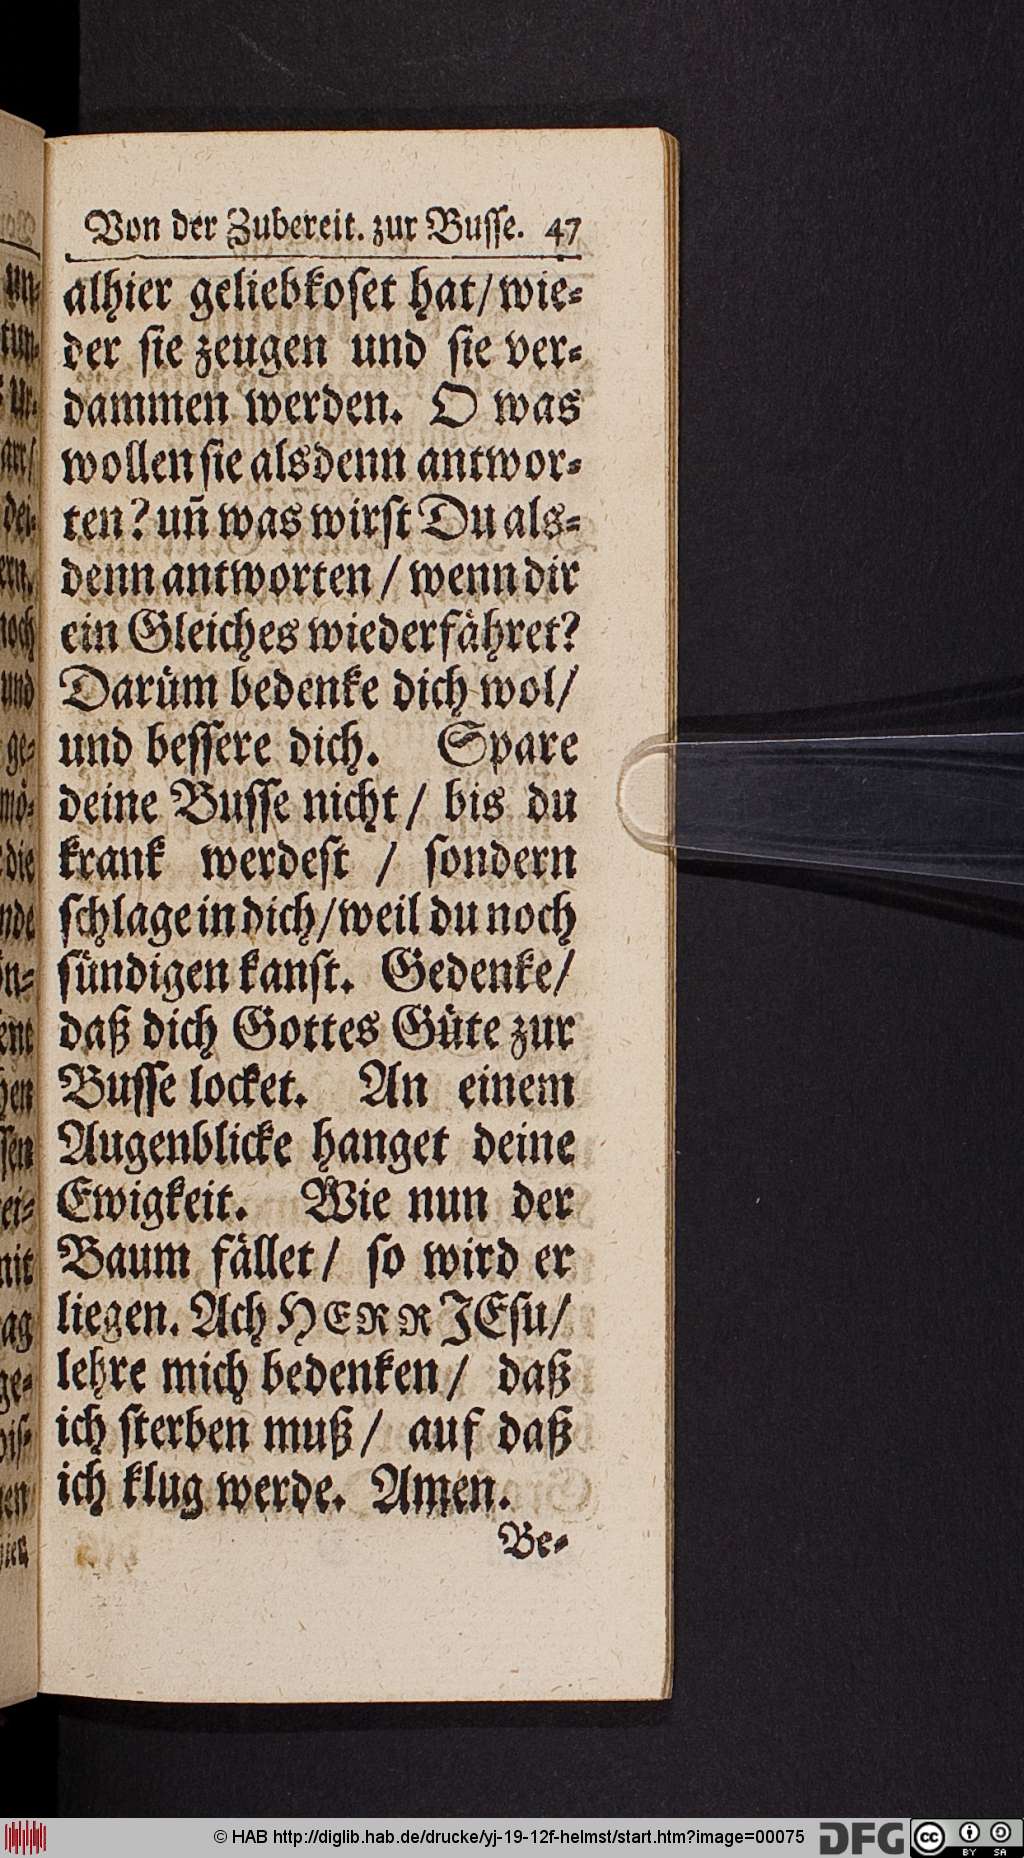 Von der Zubereit. zur Busse. 47
alhier geliebkoset hat/ wie=
der sie zeugen und sie ver=
dammen werden. O was
wollen sie alsdenn antwor=
ten? uñ was wirst Du als=
denn antworten / wenn dir
ein Gleiches wiederfähret?
Darüm bedenke dich wol/
und bessere dich. Spare
deine Busse nicht / bis du
krank werdest / sondern
schlage in dich/ weil du noch
sündigen kanst. Gedenke/
daß dich Gottes Güte zur
Busse locket. An einem
Augenblicke hanget deine
Ewigkeit. Wie nun der
Baum fället / so wird er
liegen. Ach HERR JEsu/
lehre mich bedenken / daß
ich sterben muß / auf daß
ich klug werde. Amen.
Be=
© HAB http://diglib.hab.de/drucke/yj-19-12f-helmst/start.htm?image=00075
DFG
cc BY SA